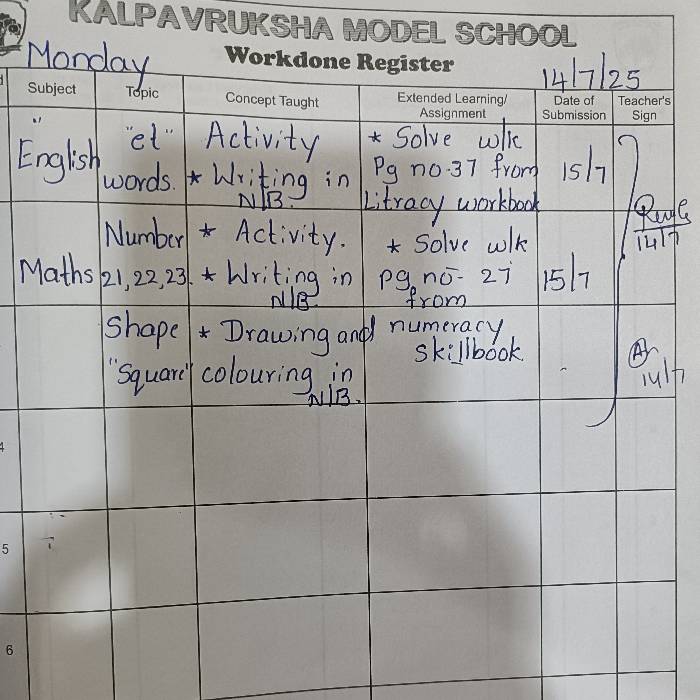 KALPAVRUKSHA MODEL SCHOOL
Workdone Register
Monday
14/7/25
Subject
Topic
Concept Taught
Extended Learning/
Assignment
Date of
Submission
Teacher's
Sign
English
"et"
words.
Activity
* Writing in
N/B.
* Solve w/k
Pg no-37 from
Litracy workbook
15/7
14/7
Maths
Number
21, 22, 23.
* Activity.
* Writing in
N/B
* Solve w/k
pg no- 27
from
numeracy
skillbook.
15/7
Shape
"Square"
* Drawing and
colouring in
N/B.
14/7
4
5
6